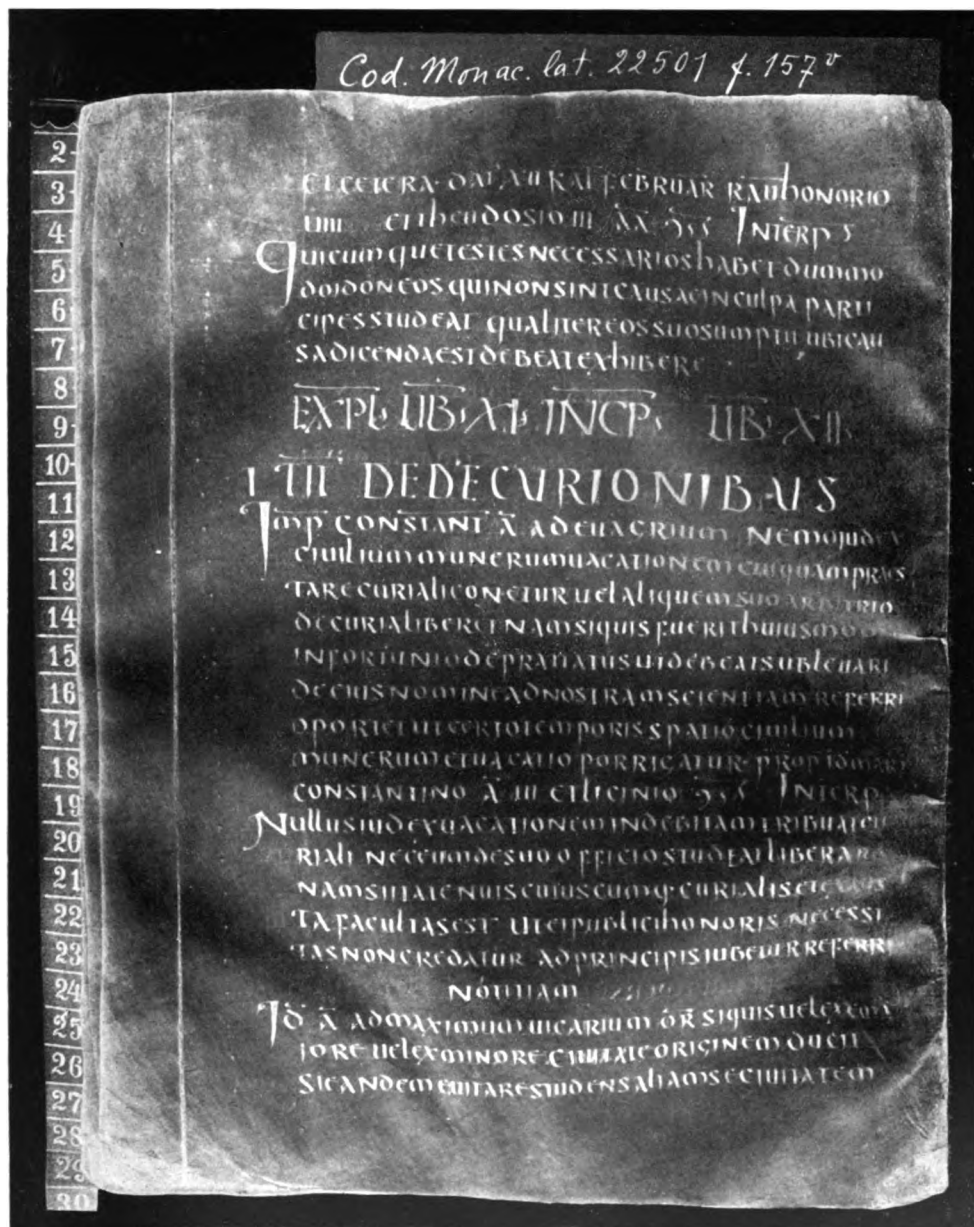 Cod. Monac. lat. 22501 f. 157v
2
3
4
5
6
7
8
9
10
11
12
13
14
15
16
17
18
19
20
21
22
23
24
25
26
27
28
29
30
ET CETERA DAT KAL FEBRUAR RAU HONORIO
IIII ET THEUDOSIO III ĀĀ INTERP
QUICUMQUE TESTES NECESSARIOS HABET DUMMO
DO IDONEOS QUI NON SINT CAUSAE IN CULPA PARTI
CIPES STUDEAT QUALITER EOS SUO SUMPTU UBI CAU
SA DICENDA EST DEBEAT EXHIBERE
EXPL LIB XI INCP LIB XII
I TIT DE DECURIONIBUS
IMP CONSTANT Ā AD EUAGRIUM NEMO IUDEX
CIUILIUM MUNERUM UACATIONEM CUIQUAM PRAES
TARE CURIALI CONETUR UEL ALIQUEM SUO ARBITRIO
DE CURIA LIBERET NAM SI QUIS FUERIT HUIUSMODI
INFORTUNIO DEPRAUATUS UT DEBEAT SUBLEUARI
DE EIUS NOMINE AD NOSTRAM SCIENTIAM REFERRI
OPORTET UT CERTO TEMPORIS SPATIO CIUILIUM
MUNERUM EI UACATIO PORRIGATUR PROP ID MART
CONSTANTINO Ā III ET LICINIO INTERP
NULLUS IUDEX UACATIONEM INDEBITAM TRIBUAT CU
RIALI NEC EUM DE SUO OFFICIO STUDEAT LIBERARE
NAM SI ITA TENUIS CUIUSCUMQ CURIALIS ET EXAUS
TA FACULTAS EST UT EI PUBLICI HONORIS NECESSI
TAS NON CREDATUR AD PRINCIPIS IUBETUR REFERRI
NOTITIAM
ID Ā AD MAXIMUM UICARIUM OR SI QUIS UEL EX MA
IORE UEL EX MINORE CIUITATE ORIGINEM DUCIT
SI EANDEM EUITARE STUDENS ALIAM SE CIUITATEM